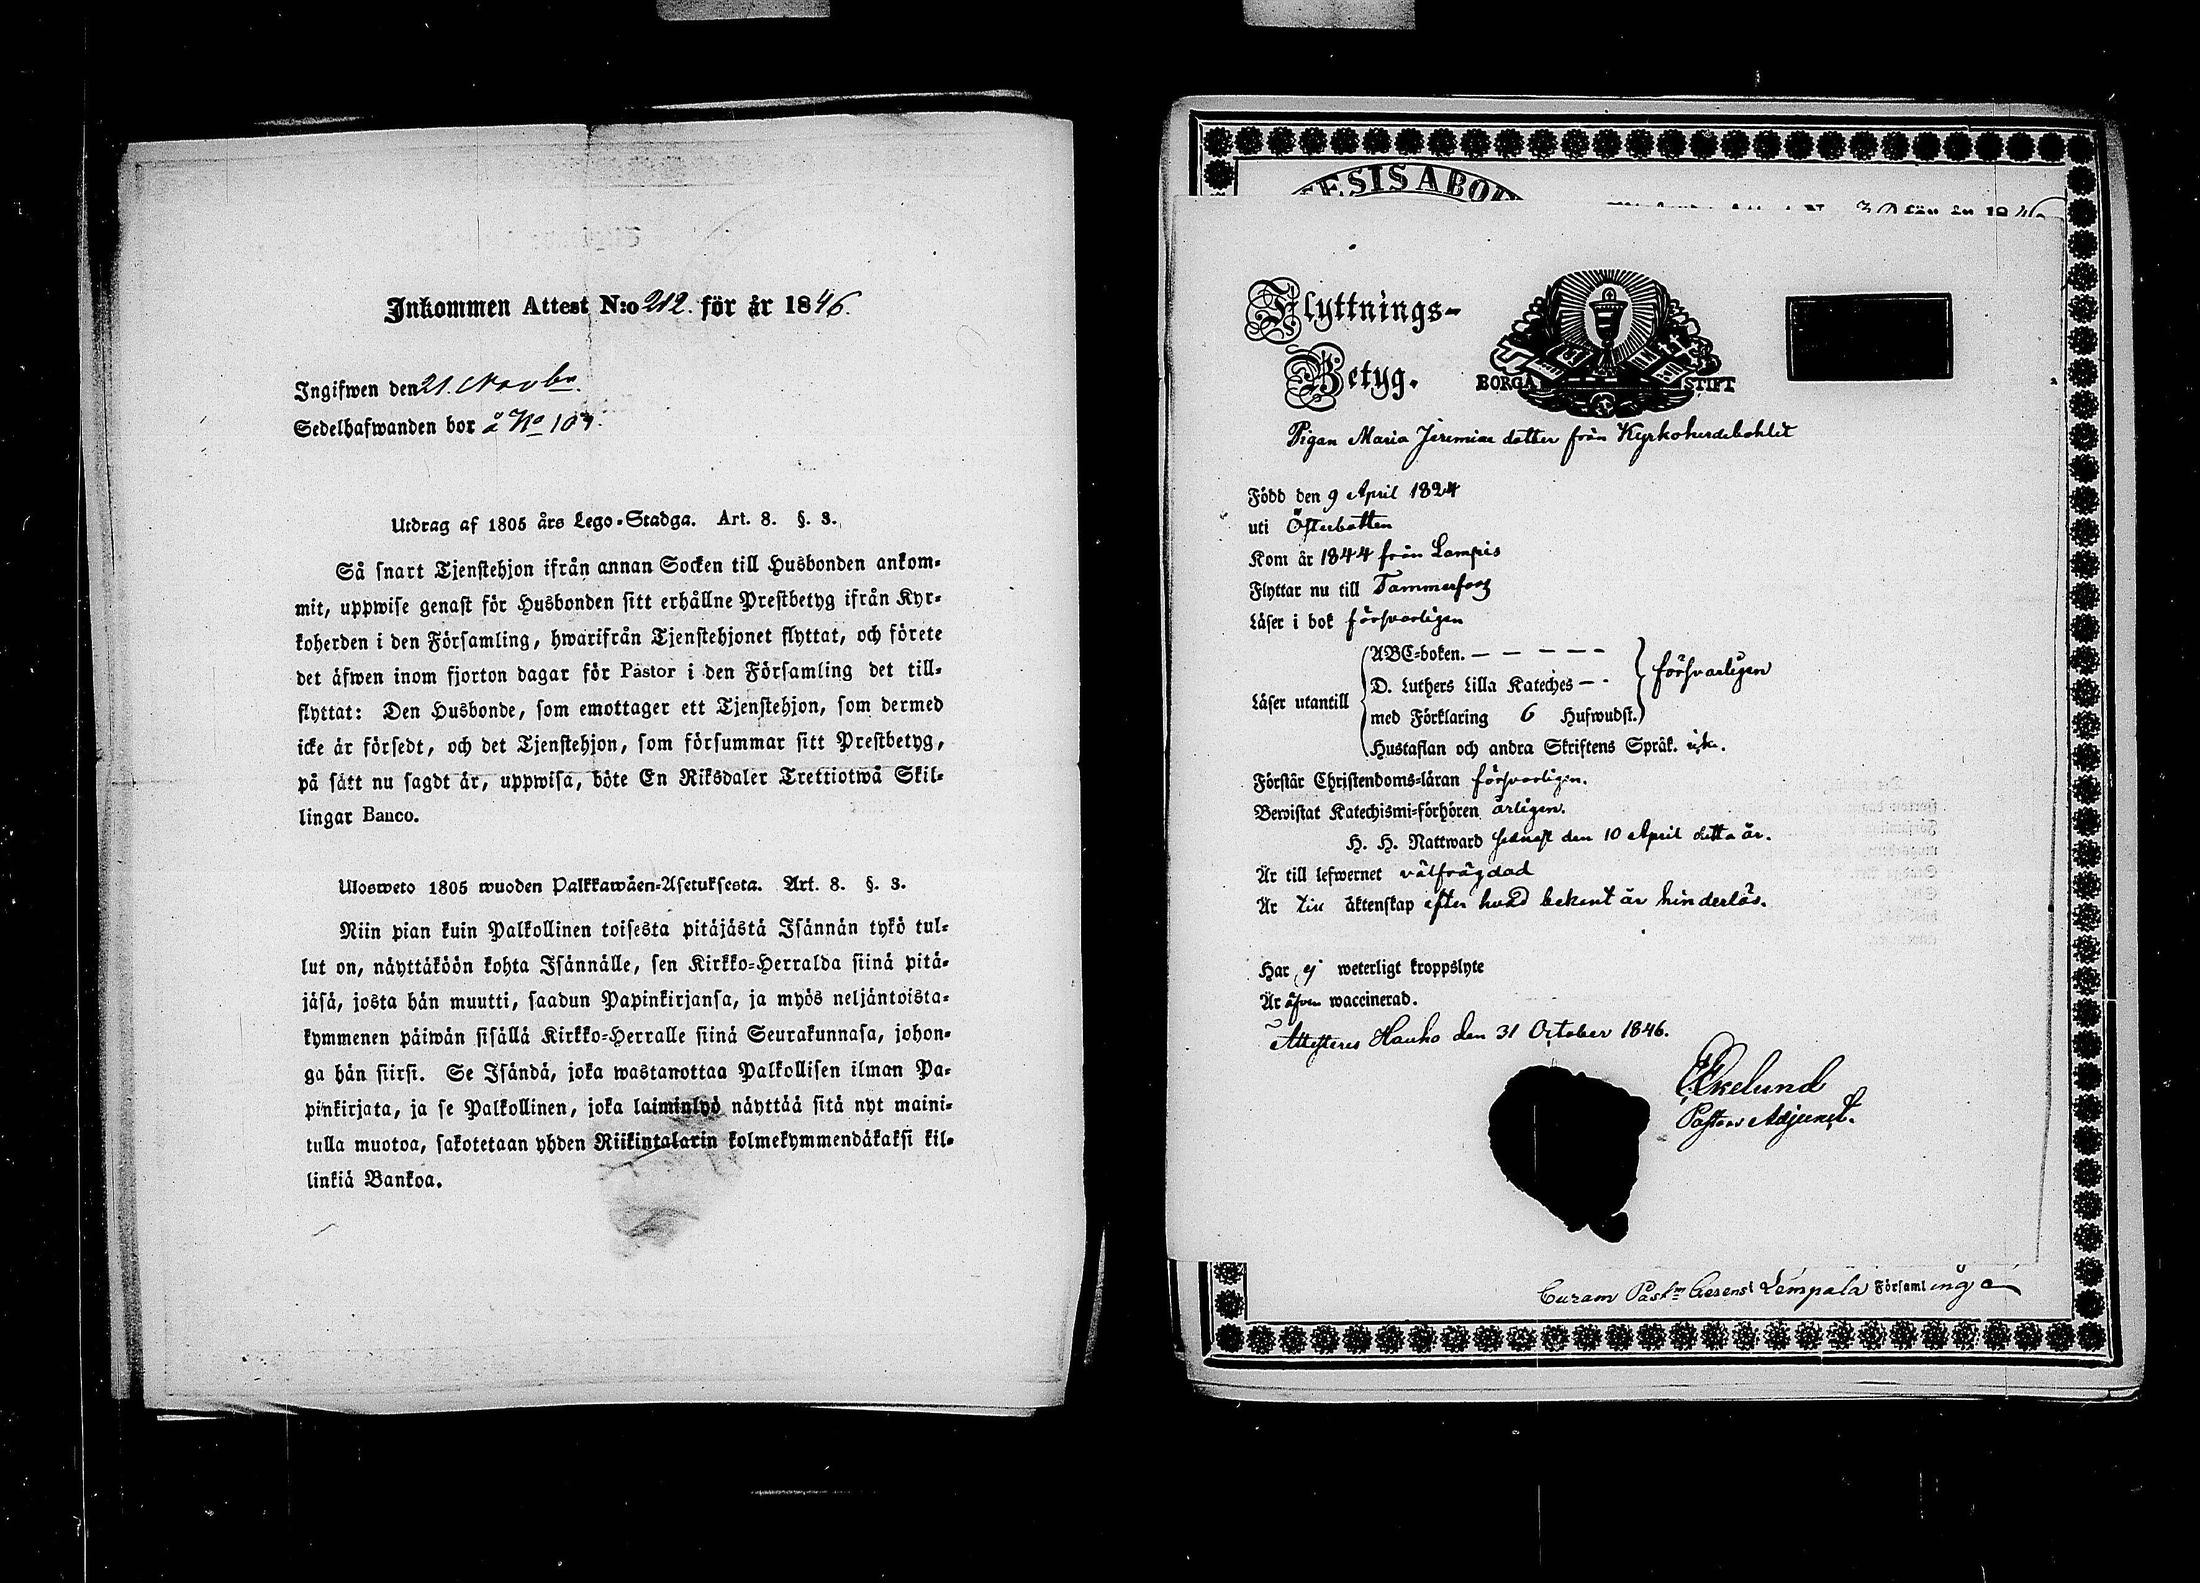 Inkommen Attest N:o 212. för år 1846.
Ingifwen den 21. Novbr
Sedelhafwanden bor å No 104.
Utdrag af 1805 års Lego-Stadga. Art. 8. §. 3.
Så snart Tjenstehjon ifrån annan Socken till Husbonden ankom-
mit, uppwise genast för Husbonden sitt erhållne Prestbetyg ifrån Kyr-
koherden i den Församling, hwarifrån Tjenstehjonet flyttat, och förete
det äfwen inom fjorton dagar för Pastor i den Församling det till-
flyttat: Den Husbonde, som emottager ett Tjenstehjon, som dermed
icke är försedt, och det Tjenstehjon, som försummar sitt Prestbetyg,
på sätt nu sagdt är, uppwisa, böte En Riksdaler Trettiotwå Skil-
lingar Banco.
Ulosweto 1805 wuoden Palkkawäen-Asetuksesta. Art. 8. §. 3.
Niin pian kuin Palkollinen toisesta pitäjästä Isännän tykö tul-
lut on, näyttäköön kohta Isännälle, sen Kirkko-Herralda siinä pitä-
jäsä, josta hän muutti, saadun Papinkirjansa, ja myös neljäntoista-
kymmenen päiwän sisällä Kirkko-Herralle siinä Seurakunnasa, johon-
ga hän siirsi. Se Isändä, joka wastanottaa Palkollisen ilman Pa-
pinkirjata, ja se Palkollinen, joka laiminlyö näyttää sitä nyt maini-
tulla muotoa, sakotetaan yhden Riikintalarin kolmekymmendäkaksi kil-
linkiä Bankoa.
ESIS ABO
30 för år 1846
Flyttnings-
Betyg.
BORGÅ STIFT
Pigan Maria Jeremiae dotter från Kyrkoherdebohlet
Född den 9 April 1824
uti Österbotten
Kom år 1844 från Lampis
Flyttar nu till Tammerfors
Läser i bok försvarligen
Läser utantill
ABC-boken. — — — — —
D. Luthers Lilla Kateches — -
med Förklaring 6 Hufwudst.
försvarligen
Hustaflan och andra Skriftens Språk. icke.
Förstår Christendoms-läran försvarligen.
Bewistat Katechismi-förhören årligen.
H. H. Nattward senast den 10 April detta år.
Är till lefwernet välfrägdad
Är till äktenskap efter hvad bekent är hinderlös.
Har ej weterligt kroppslyte
Är äfven waccinerad.
Attesteres Hauho den 31 October 1846.
Ekelund
Pastors Adjunct.
Curam Past. Gerens i Lempälä Församling